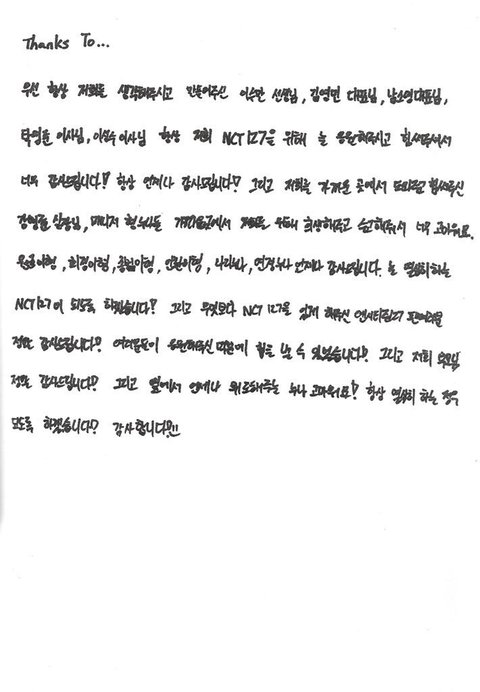 Thanks To...
우선 항상 저희를 생각해주시고 만들어주신 이수만 선생님, 김영민 대표님, 남소영대표님,
탁영준 이사님, 이성수이사님 항상 저희 NCT127을 위해 늘 응원해주시고 힘써주셔서
너무 감사드립니다! 항상 언제나 감사드립니다! 그리고 저희를 가까운 곳에서 도와주고 힘써주신
실장님, 매니저 형누나들 가까운곳에서 저희를 위해 희생해주고 해주셔서 너무 고마워요.
, 희경이형, , , 나라누나, 언제나 감사드립니다. 늘 열심히하는
NCT127이 되도록 하겠습니다! 그리고 무엇보다 NCT 127을 있게 해주신 엔시티127 팬여러분
정말 감사드립니다! 여러분들이 응원해주신 덕분에 힘을 낼 수 있었습니다! 그리고 저희 부모님
정말 감사드립니다! 그리고 옆에서 언제나 위로해주는 누나 고마워요! 항상 열심히 하는 정우
되도록 하겠습니다! 감사합니다!!!